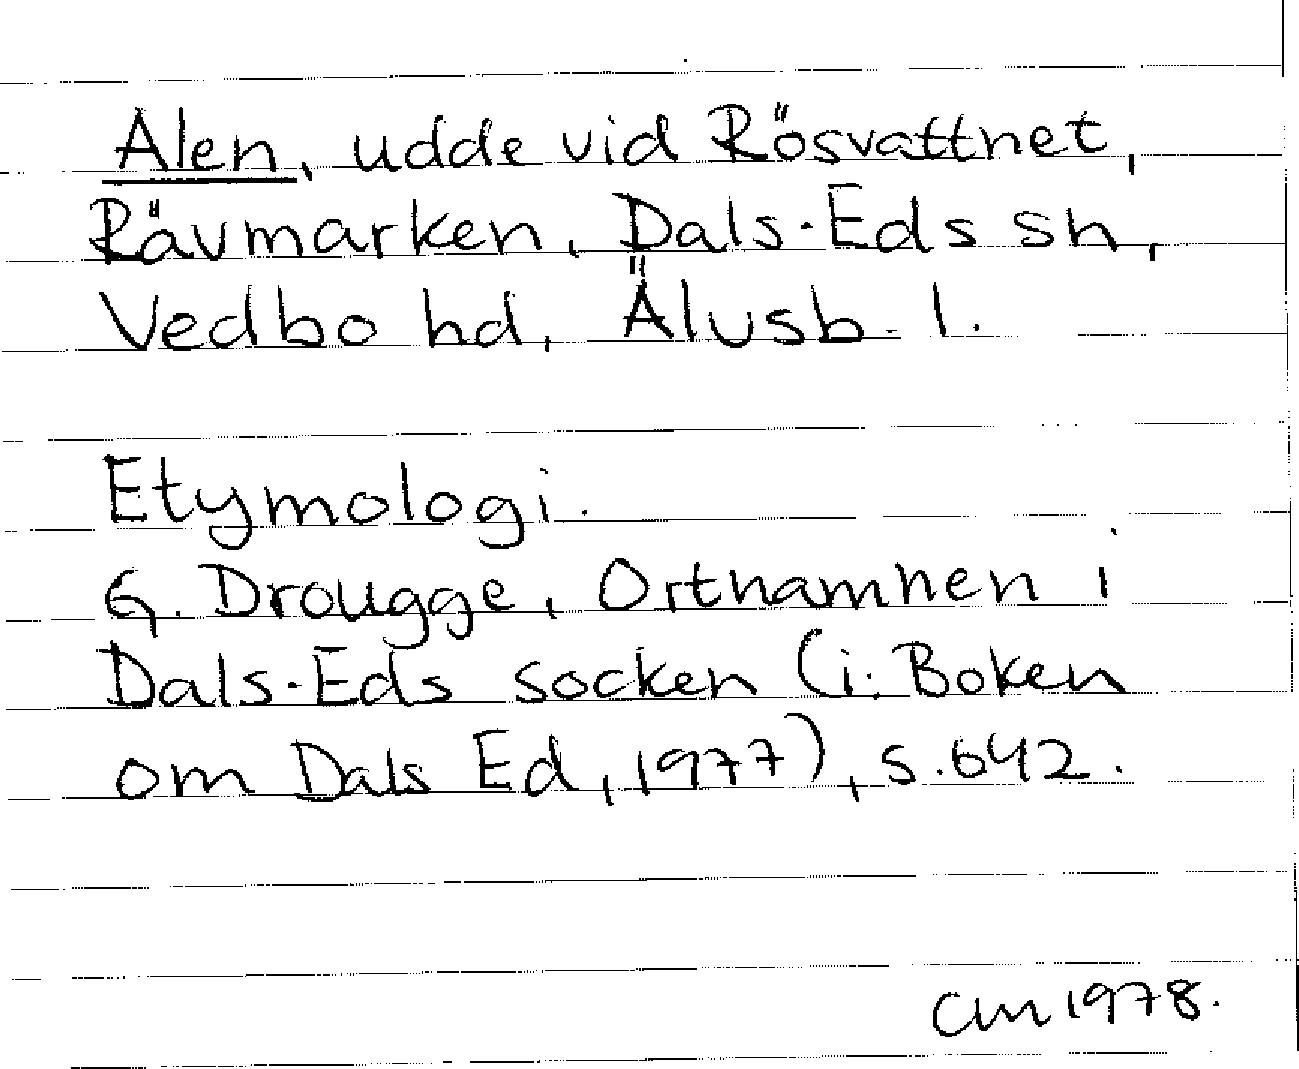 Alen, udde vid Rösvattnet,
Rävmarken, Dals-Eds sn,
Vedbo hd, Älvsb. l.
Etymologi.
G. Drougge, Ortnamnen i
Dals-Eds socken (i: Boken
om Dals Ed, 1977), s. 642.
CM 1978.